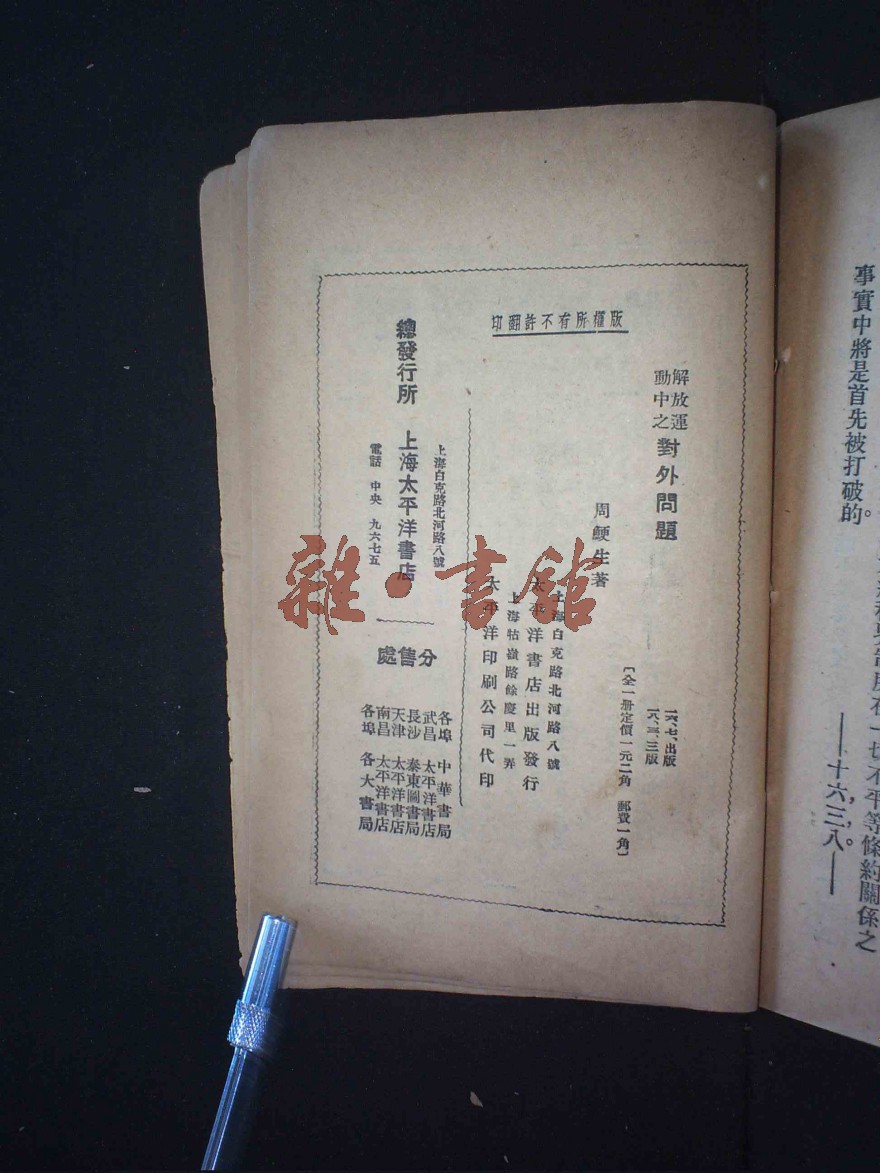 事實中將是首先被打破的。
一切不平等條約關係之
——十六，三，八。——
版權所有不許翻印
解放運動中之對外問題
一六、七、出版
一八、三、三版
〔全一册定價一元二角 郵費一角〕
周鯁生著
上海白克路北河路八號
太平洋書店出版發行
上海牯嶺路餘慶里一弄
太平洋印刷公司代印
上海白克路北河路八號
總發行所 上海太平洋書店
電話 中央 九六七五
分售處
各埠 中華書局
武昌 太平洋書店
長沙 泰東圖書局
天津 太平洋書店
南昌 太平洋書店
各埠 各大書局
雜·書館